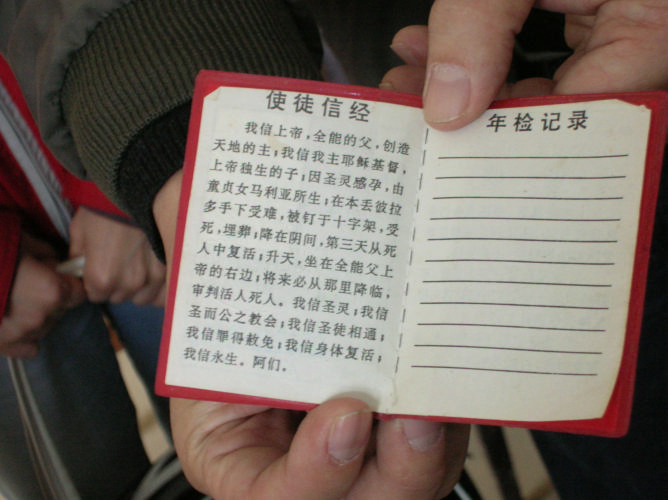 使徒信经
我信上帝，全能的父，创造
天地的主；我信我主耶稣基督，
上帝独生的子；因圣灵感孕，由
童贞女马利亚所生；在本丢彼拉
多手下受难，被钉于十字架，受
死，埋葬；降在阴间，第三天从死
人中复活；升天，坐在全能父上
帝的右边；将来必从那里降临，
审判活人死人。我信圣灵；我信
圣而公之教会；我信圣徒相通；
我信罪得赦免；我信身体复活；
我信永生。阿们。
年检记录